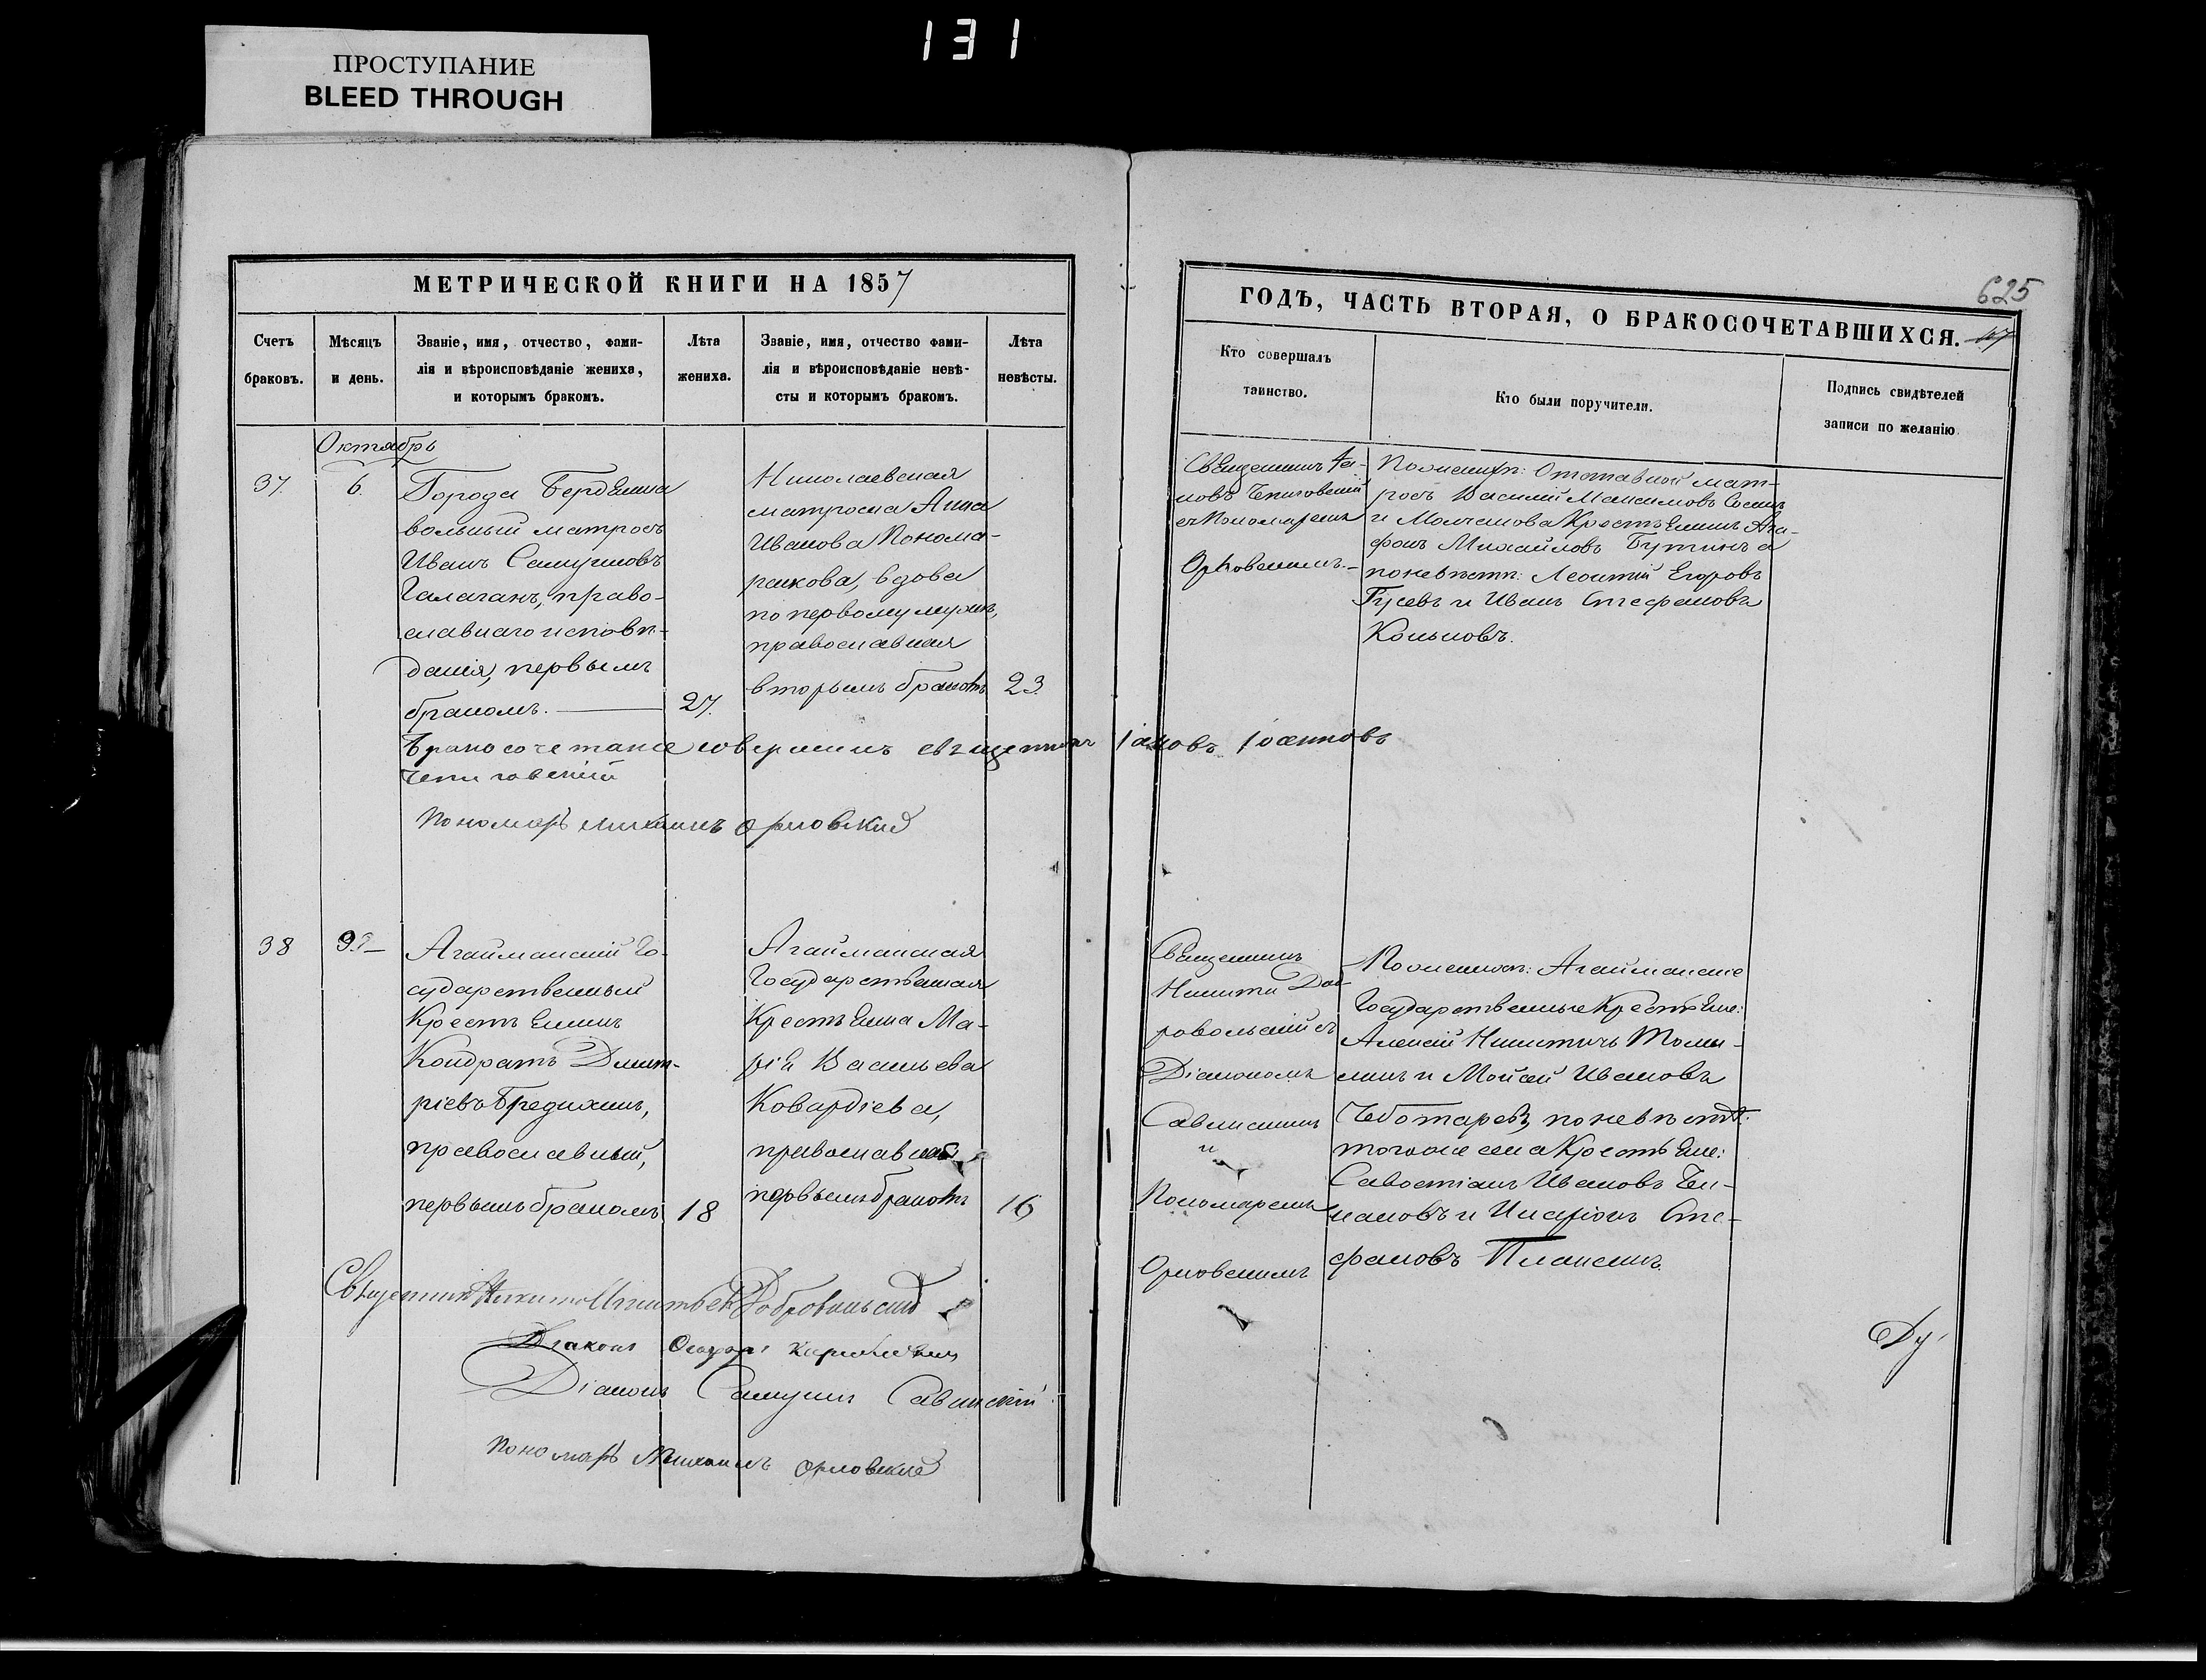 131
ПРОСТУПАНИЕ
BLEED THROUGH
МЕТРИЧЕСКОЙ КНИГИ НА 1857
Счетъ браковъ.
Мѣсяцъ и день.
Званіе, имя, отчество, фами-
лія и вѣроисповѣданіе жениха,
и которымъ бракомъ.
Лѣта жениха.
Званіе, имя, отчество фами-
лія и вѣроисповѣданіе невѣ-
сты и которымъ бракомъ.
Лѣта невѣсты.
Октябрь
37.
6.
Города Бердянска
вольный матросъ
Иванъ Самуиловъ
Галаганъ, право-
славнаго исповѣ-
данія, первымъ
бракомъ.
27.
Николаевская
матроска Анна
Иванова Понома-
ренкова, вдова
по первому мужѣ,
православная
вторымъ бракомъ
23.
Бракосочетание совершилъ священникъ Іаковъ Іоанновъ
Чепиговскій
Пономарь Михаилъ Орловский
38
9
Агайманскій Го-
сударственный
Крестьянинъ
Кондратъ Дмит-
ріевъ Бредихинъ,
православный,
первымъ бракомъ
18
Агайманская
Государственная
Крестьянка Ма-
рія Васильева
Ковардіева,
православная
первымъ бракомъ
16
Священник Никита Добровольский
Діаконъ Самуилъ Савинскій
Пономарь Михаилъ Орловский
625
47
ГОДЪ, ЧАСТЬ ВТОРАЯ, О БРАКОСОЧЕТАВШИХСЯ.
Кто совершалъ
таинство.
Кто были поручители.
Подпись свидѣтелей
записи по желанію
Священникъ Іа-
ковъ Чепиговскій
съ Пономаремъ
Орловскимъ.
По женихѣ: Отставной мат-
росъ Василій Максимовъ
и Молчанова Крестьянинъ Ага-
фонъ Михайловъ Бутинъ а
по невѣстѣ: Леонтій Егоровъ
Гусевъ и Иванъ Стефановъ
Копыловъ.
Священникъ
Никита Доб-
ровольскій съ
Діакономъ
Савинскимъ
и
Пономаремъ
Орловскимъ
По женихѣ: Агайманскіе
Государственные Крестьяне:
Алексій Никитичъ
и Мойсей Ивановъ
Чеботаревъ, по невѣстѣ:
тогоже села Крестьяне:
Савостіанъ Ивановъ
и Иларіонъ Сте-
фановъ Плаксинъ.
Ду